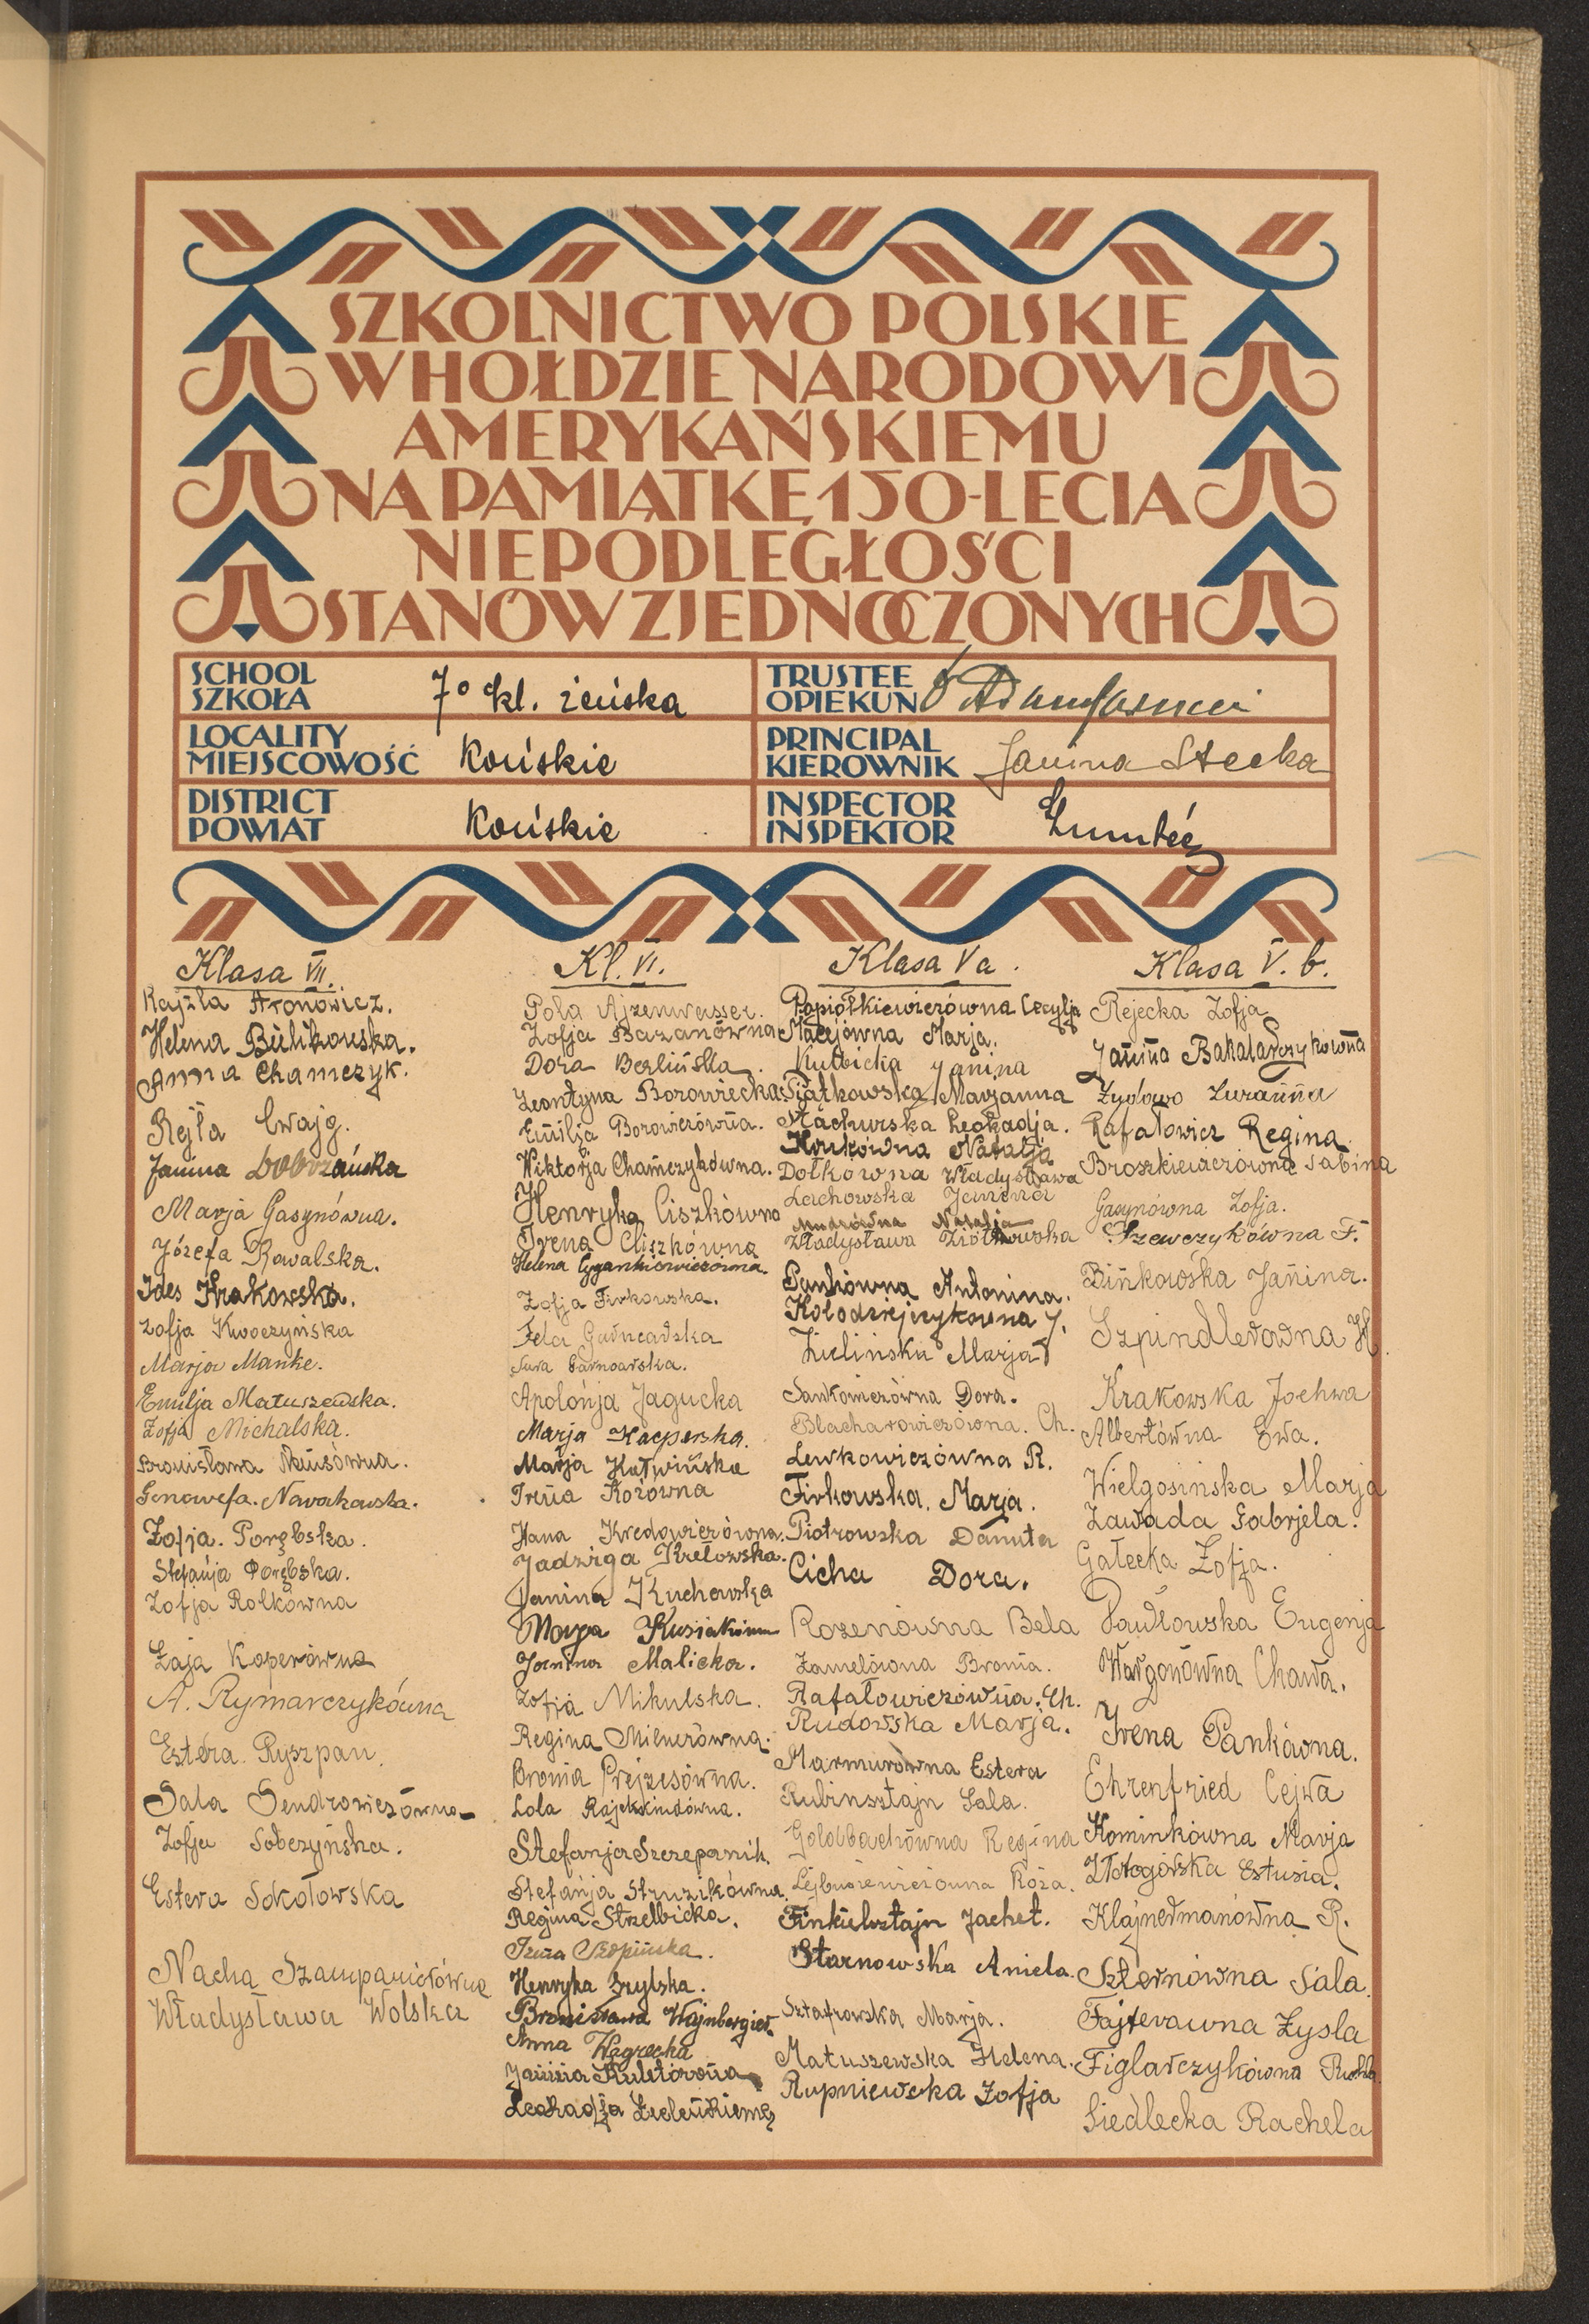 SZKOLNICTWO POLSKIE
W HOŁDZIE NARODOWI
AMERYKAŃSKIEMU
NA PAMIĄTKĘ 150-LECIA
NIEPODLEGŁOŚCI
STANÓW ZJEDNOCZONYCH
SCHOOL
SZKOŁA
7º kl. żeńska
TRUSTEE
OPIEKUN
LOCALITY
MIEJSCOWOŚĆ
Końskie
PRINCIPAL
KIEROWNIK
Janina Stecka
DISTRICT
POWIAT
Końskie
INSPECTOR
INSPEKTOR
Klasa VII.
Rajzla Aronowicz.
Helena Bielikowska.
Anna Chamczyk.
Rejla Cwajg.
Janina Dobrzańska
Marja Gasynówna.
Józefa Kowalska.
Ides Krakowska.
Zofja Kwoczyńska
Marja Manke.
Emilja Matuszewska.
Zofja Michalska.
Bronisława
Genowefa. Nowakowska.
Zofja. Porębska.
Stefanja Porębska.
Zofja Rolkówna
Łaja Koperówna
A. Rymarczykówna
Estera Ryszpan.
Sala Sendrowiczówna
Zofja Sobczyńska.
Estera Sokołowska
Nacha Szampanierówna
Władysława Wolska
Kl. VI.
Pola Ajzenwasser.
Zofja Bazanówna
Dora Berlińska.
Leontyna Borowiecka.
Emilja Borowieówna.
Wiktorja Chamczykówna.
Henryka Ciszkówna
Irena Ciszkówna
Helena Cygankiewiczówna.
Zofja Firkowska.
Fela Garncarska
Sura Garncarska.
Apolonja Jagucka
Marja Kacperska.
Marja Kotwińska
Irena Kozówna
Hana Kredowiczówna.
Jadwiga Kretowska.
Janina Kuchowska
Janina Malicka.
Zofja Mikulska.
Regina Milnerówna.
Bronia Prejzesówna.
Lola
Stefanja Szczepanik.
Stefanja Struzikówna.
Regina Strzelbicka.
Irena
Henryka Szylska.
Bronisława Wajnbergier.
Anna Węgrecka
Janina
Leokadja
Klasa Va.
Popiółkiewiczówna Cecylja
Macejówna Marja.
Kubicka Janina
Piątkowska Marjanna
Stachurska Leokadja.
Natalja
Dołkówna Władysława
Lachowska Janina
Mudrówna Natalja
Władysława Ziółkowska
Pankówna Antonina.
Kołodziejczykówna J.
Zielińska Marja
Sankowiczówna Dora.
Blacharowiczówna. Ch.
Lewkowiczówna R.
Firkowska. Marja.
Piotrowska Danuta
Cicha Dora.
Rozenówna Bela
Zamelówna Bronia.
Rafałowiczówna. Ch.
Rudowska Marja.
Marmurówna Estera
Rubinsztajn Sala.
Goldbachówna Regina
Lejbusiewiczówna Róża.
Finkielsztajn Jachet.
Starnowska Aniela.
Sztafrowska Marja.
Matuszewska Helena.
Rupniewska Zofja
Klasa V. b.
Rejecka Zofja
Janina Bakalarczykówna
Żydowo Zuzanna
Rafałowicz Regina
Broszkiewiczówna Sabina
Gasynówna Zofja.
Szewczykówna F.
Bińkowska Janina.
Szpindlerówna H.
Krakowska Jochwa
Albertówna Ewa.
Wielgosińska Marja
Zawada Gabrjela.
Gałecka Zofja.
Pawłowska Eugenja
Wargonówna Chawa.
Irena Pankówna.
Ehrenfried Cejwa
Kominkówna Marja
Złotogórska Estusia.
Klajnermanówna R.
Szternówna Sala.
Fajterówna Zysla
Figlarczykówna
Siedlecka Rachela